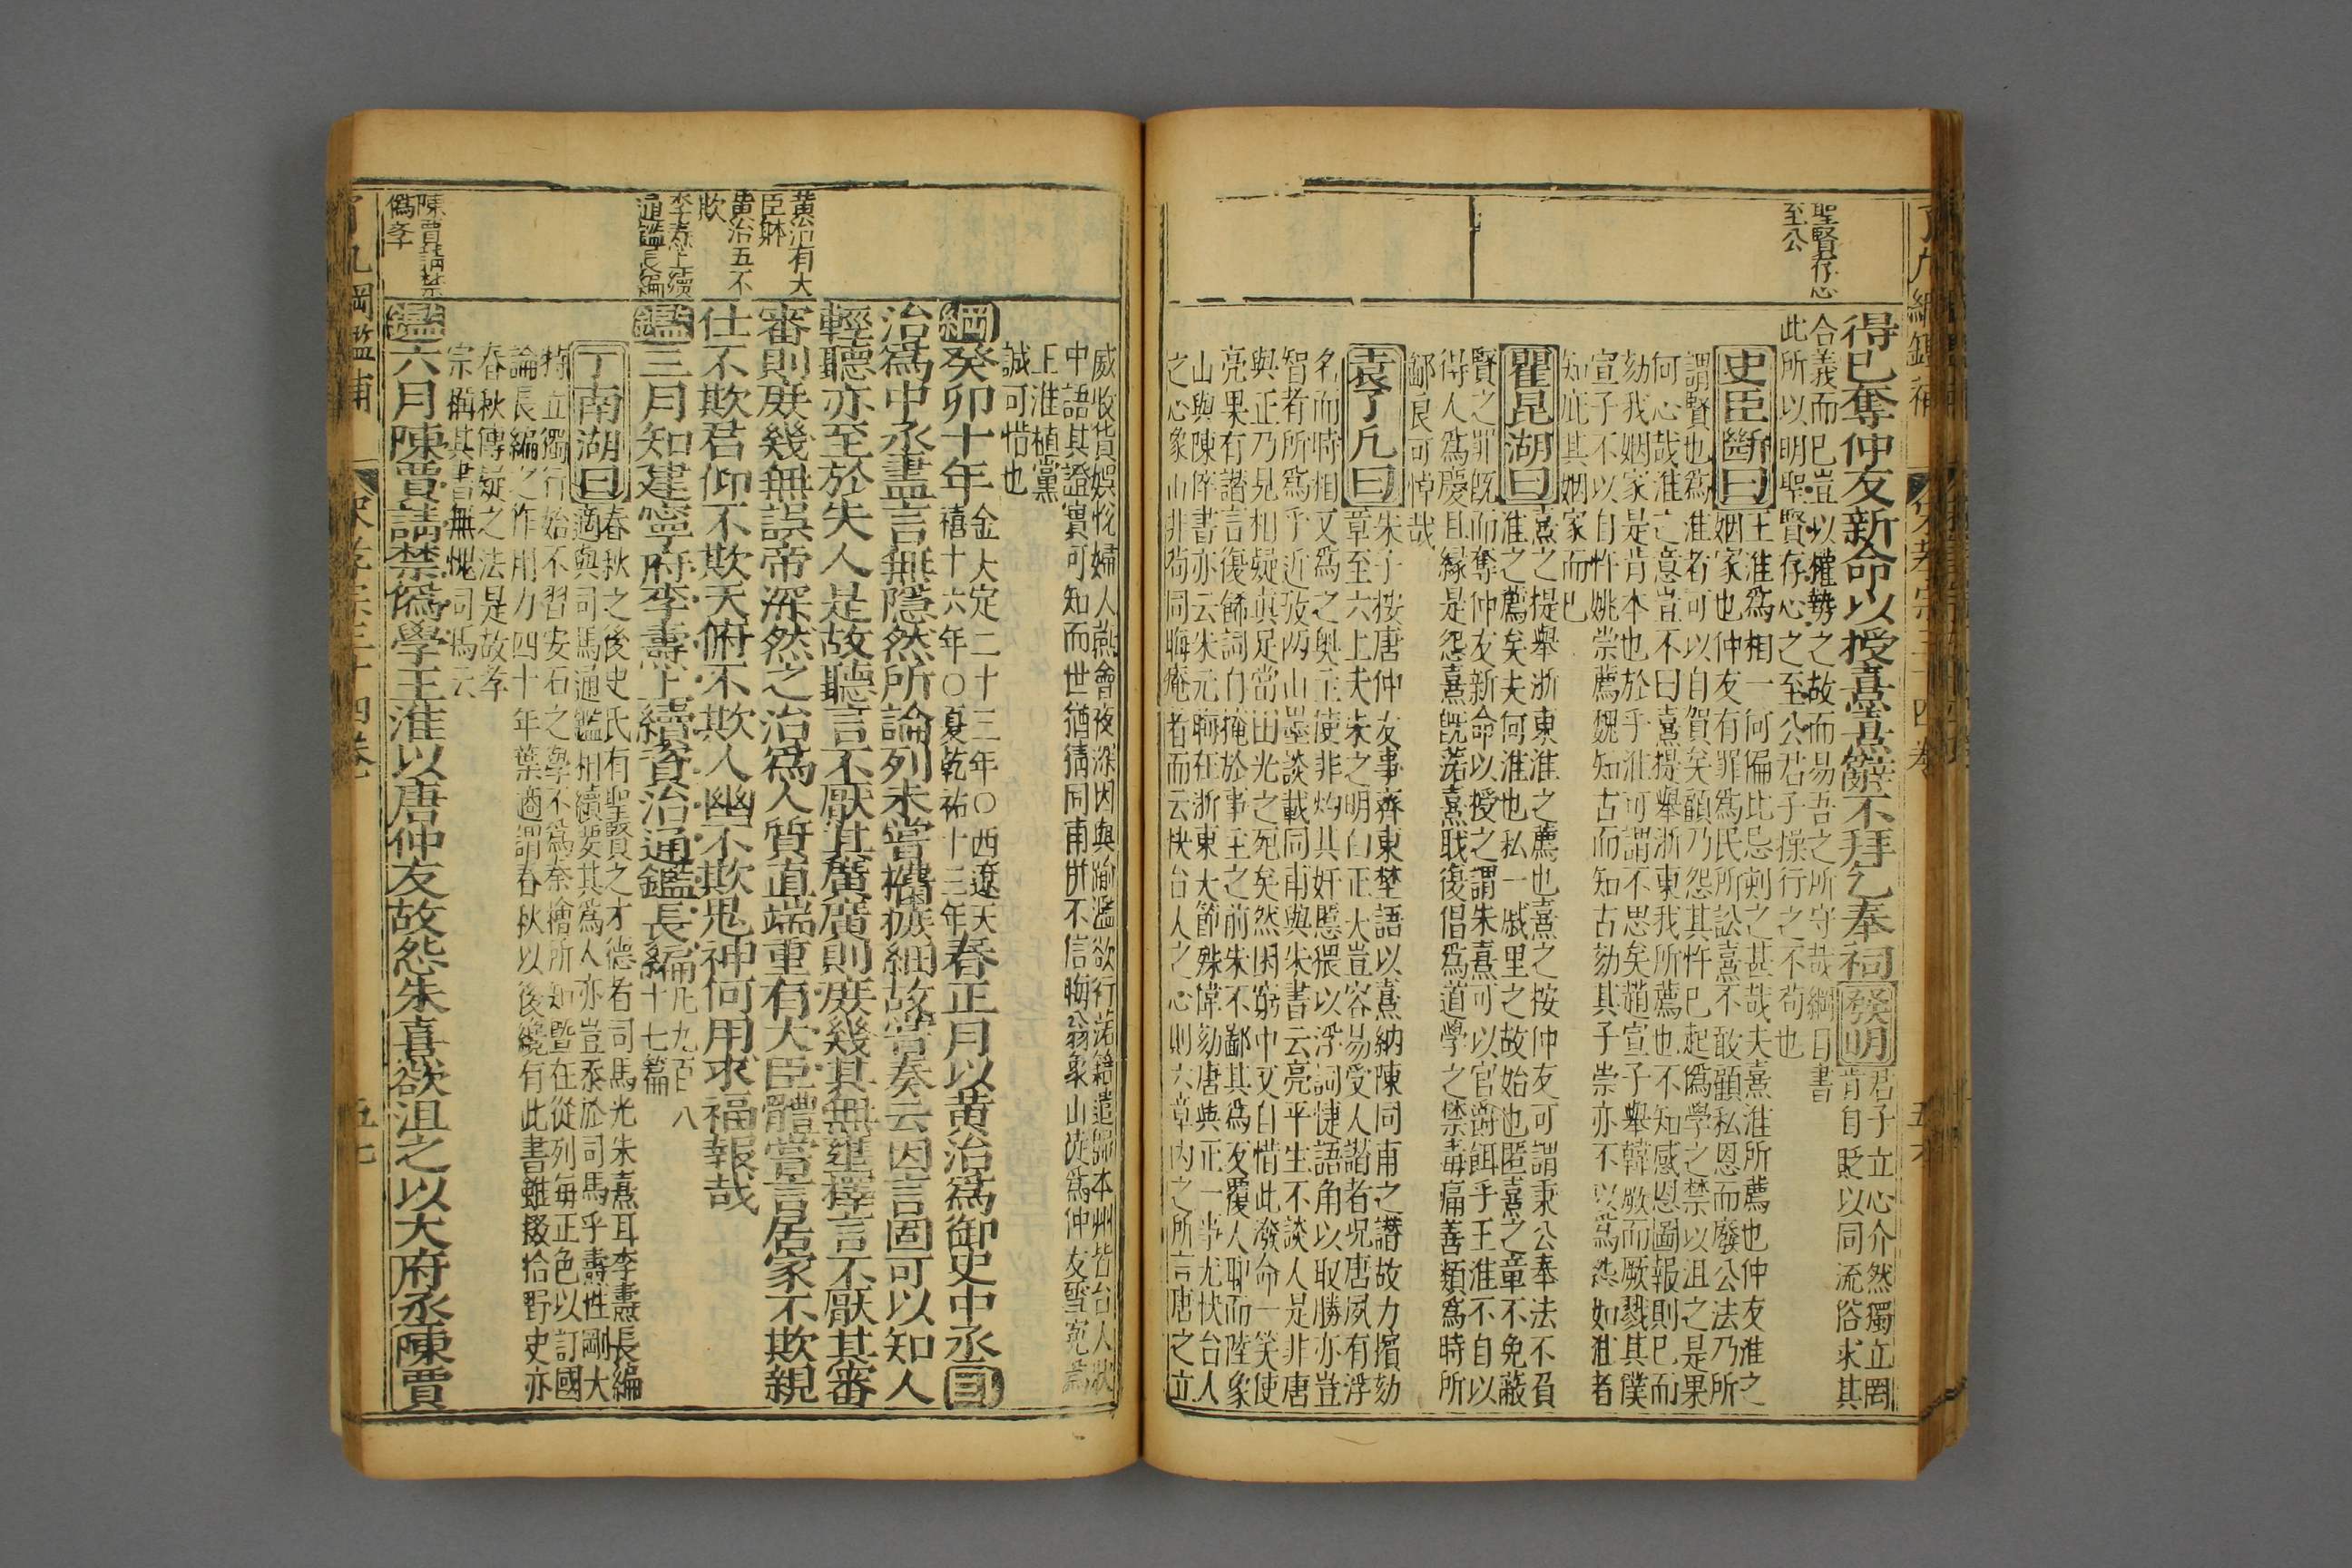 聖賢存心
至公
得已奪仲友新命以授熹熹辭不拜乞奉祠發明
君子立心介然獨立罔
肯自貶以同流俗求其
合義而已豈以權勢之故而易吾之所守哉綱目書
此所以明聖賢存心之至公君子操行之不苟也
史臣斷曰
王淮爲相一何偏比忌剌之甚哉夫熹淮所薦也仲友淮之
姻家也仲友有罪爲民所訟熹不敢顧私恩而廢公法乃所
謂賢也爲淮者可以自賀矣顧乃怨其忤已起僞學之禁以沮之是果
何心哉淮之意豈不曰熹提舉浙東我所薦也不知感恩圖報則已而
劾我姻家是肯本也於乎淮可謂不思矣趙宣子舉韓厥而厥戮其僕
宣子不以自忤姚崇薦魏知古而知古劾其子崇亦不以爲怨如淮者
知庇其姻家而已
瞿昆湖曰
熹之提舉浙東淮之薦也熹之按仲友可謂秉公奉法不負
淮之薦矣夫何淮也私一戚里之故始也匿熹之章不免蔽
賢之罪旣而奪仲友新命以授之謂朱熹可以官爵餌乎王淮不自以
得人爲慶且緣是怨熹旣深熹耻復倡爲道學之禁毒痡善類爲時所
鄙良可悼哉
袁了凡曰
朱子按唐仲友事齊東埜語以熹納陳同甫之譖故力擯劾
章至六上夫朱之明白正大豈容易受人譖者况唐夙有浮
名而時相又爲之奥主使非灼其奸慝猥以浮詞徢語角以取勝亦豈
智者所爲乎近攷兩山墨談載同甫與朱書云亮平生不談人是非唐
與正乃見相疑真足當田光之死矣然困窮中又自惜此潑命一笑使
亮果有譖言復餙詞自掩於事主之前朱不鄙其爲友覆人聊而陸象
山與陳倅書亦云朱元晦在浙東大節殊偉劾唐與正一事尤快台人
之心象山非苟同晦庵者而云快台人之心則六章内之所言唐之立
威收貨娯悅婦人燕會夜深因與踰濫欲行落籍遣歸本州皆台人狀
中語其證實可知而世猶猜同甫併不信晦翁象山從爲仲友雪寃爲
王淮植黨
誠可惜也
綱癸卯十年
金大定二十三年〇西遼天
禧十六年〇夏乾祐十三年
春正月以黄洽爲御史中丞目
治爲中丞盡言無隱然所論列未嘗摭疵細故嘗奏云因言固可以知人
輕聽亦至於失人是故聽言不厭其廣廣則庶幾其無壅擇言不厭其審
審則庶幾無誤帝深然之治爲人質直端重有大臣體嘗言居家不欺親
仕不欺君仰不欺天俯不欺人幽不欺鬼神何用求福報哉
鑑三月知建寧府李燾上續資治通鑑長編
凡九百八
十七篇
丁南湖曰
春秋之後史氏有聖賢之才德者司馬光朱熹耳李燾長編
適與司馬通鑑相續要其爲人亦豈忝於司馬乎燾性剛大
特立獨行始不習安石之學不爲秦檜所知曁在從列每正色以訂國
論長編之作用力四十年葉適謂春秋以後纔有此書雖掇拾野史亦
春秋傳疑之法是故孝
宗稱其書無愧司馬云
鑑六月陳賈請禁僞學王淮以唐仲友故怨朱熹欲沮之以大府丞陳賈
黄洽有大
臣躰
黄洽五不
欺
李燾上續
通鑑長編
陳賈請禁
僞孝
了凡綱鑑補
宋孝宗三十四卷
五七